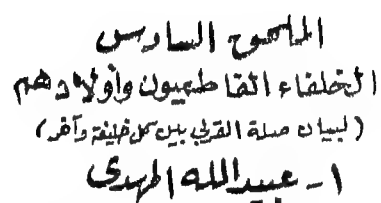 الملحق السادس
الخلفاء الفاطميون وأولادهم
(لبيان صلة القربى بين كل خليفة وآخر)
١- عبيدالله المهدى